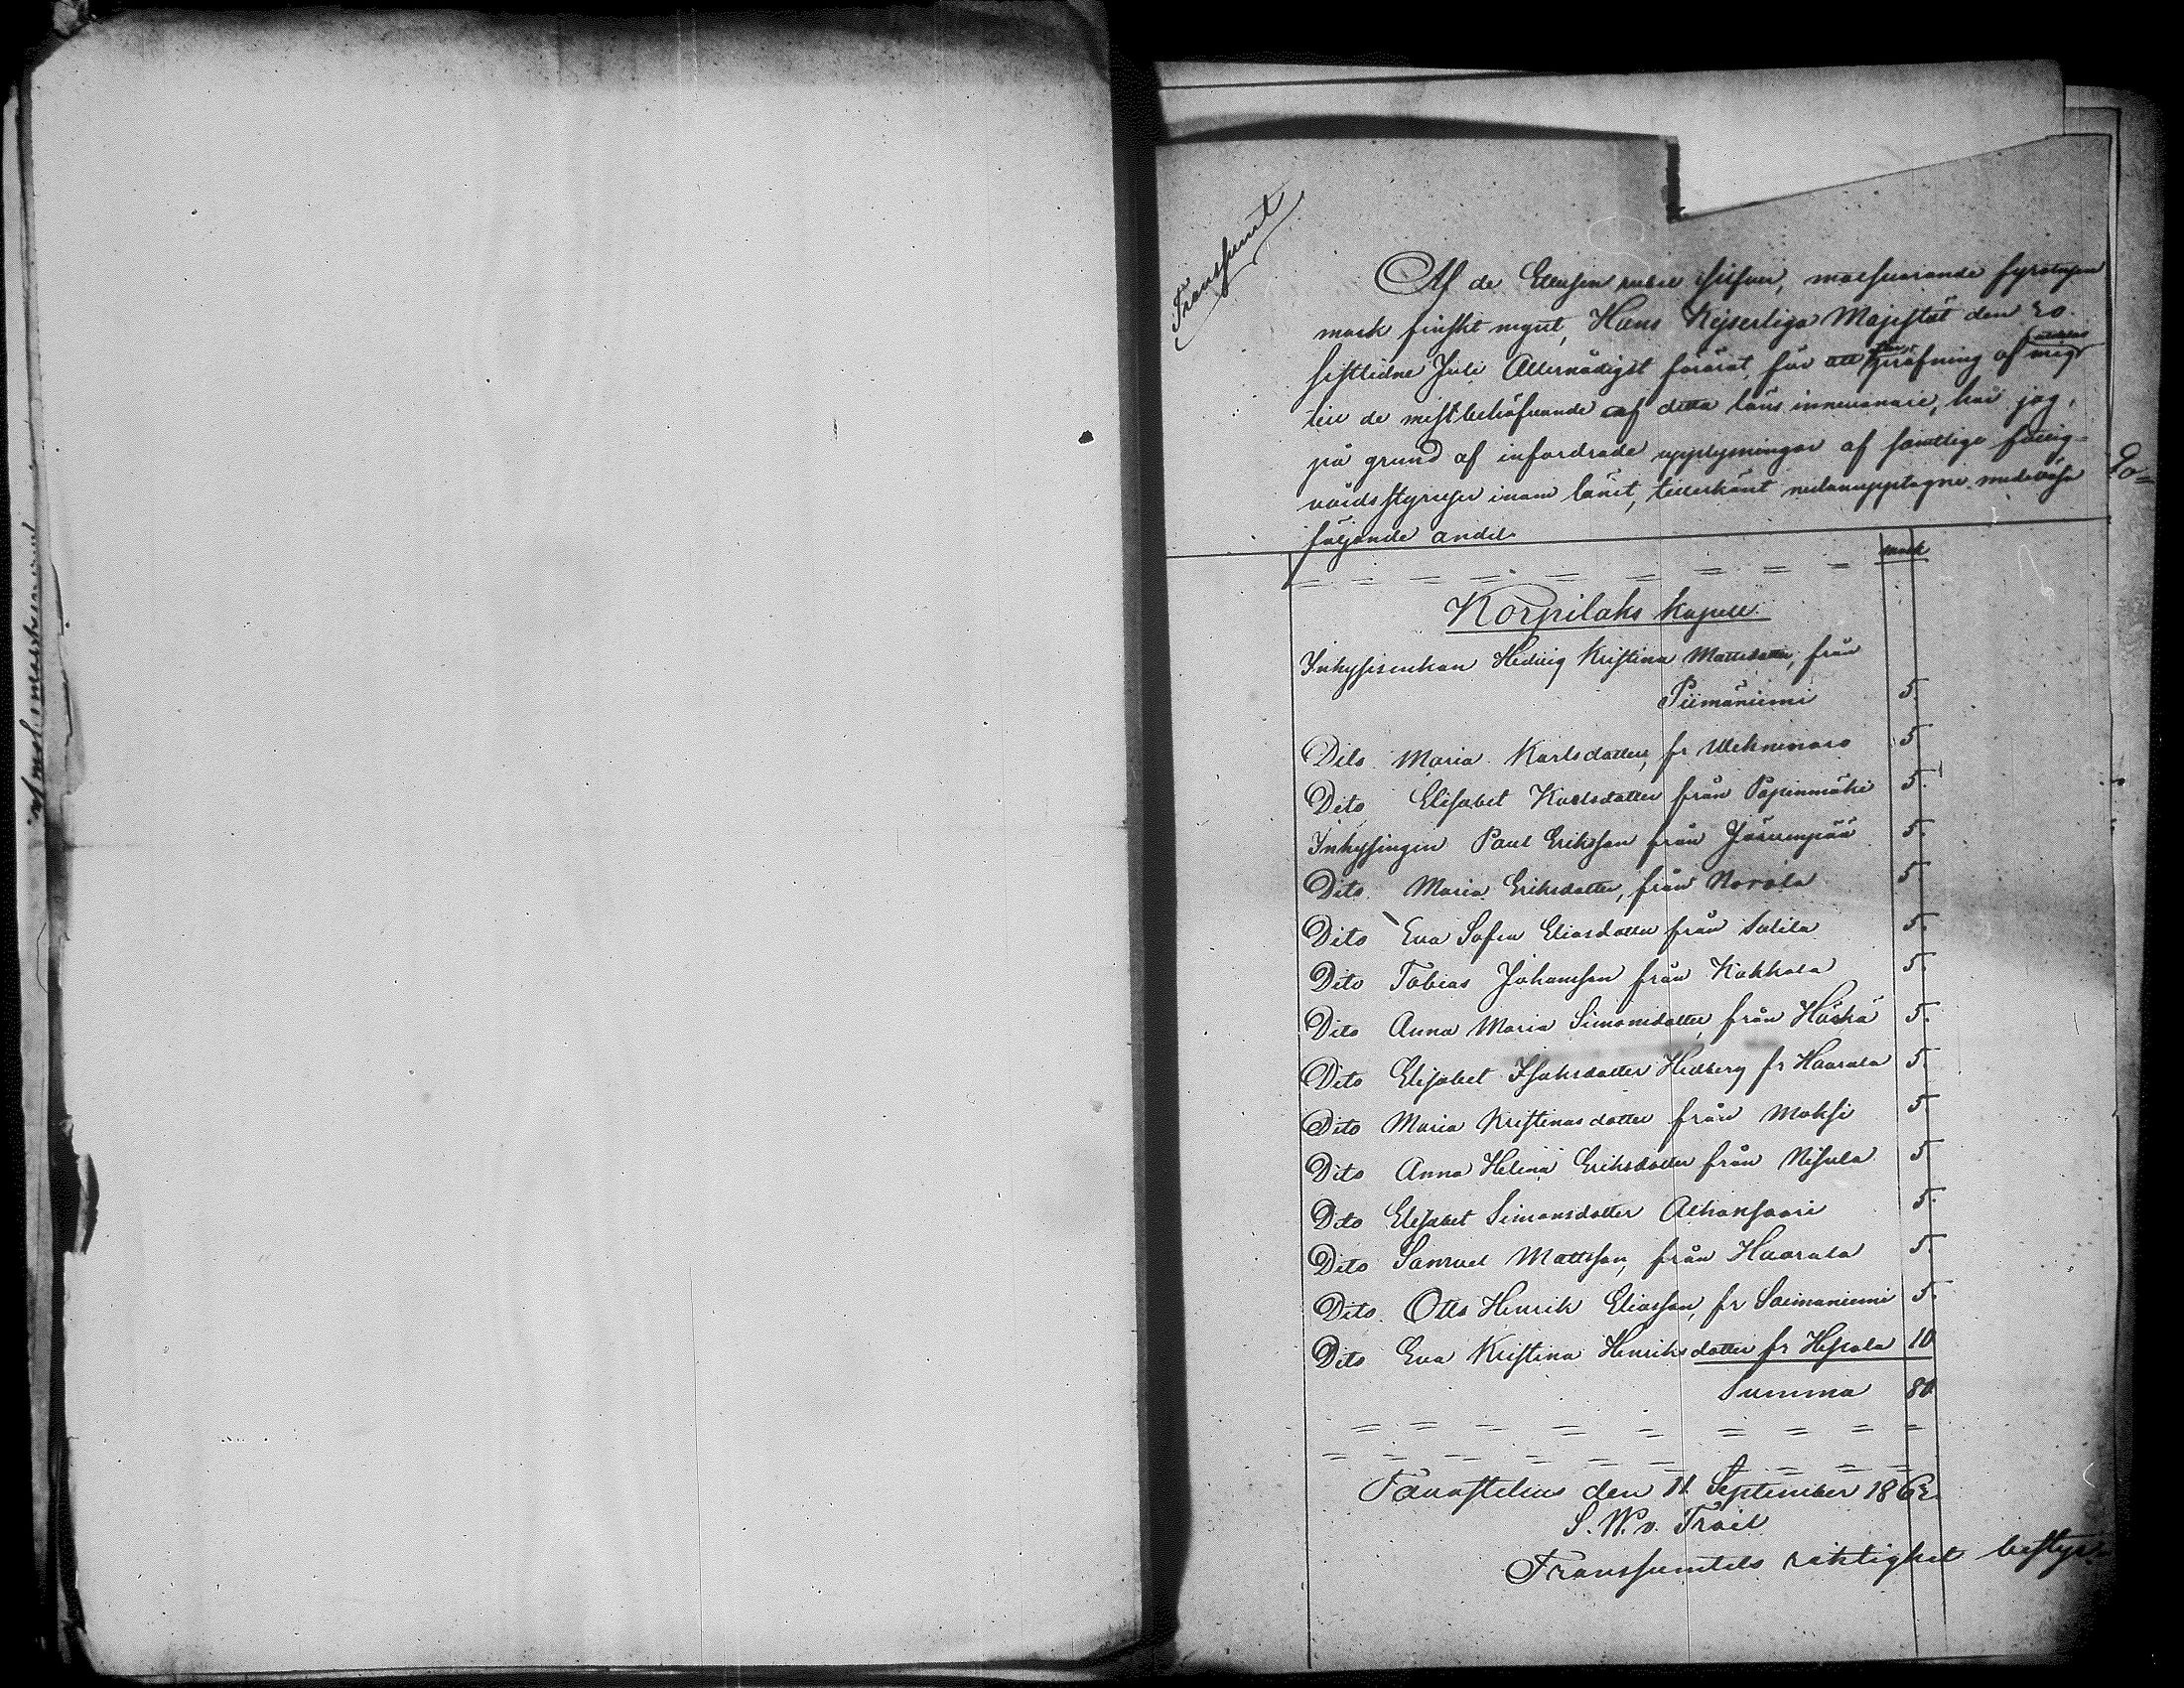 Transsumt
Af de Ettusen rubel silfver, motsvarande fyratusen
mark finskt mynt, Hans Kejserliga Majestät den 20.
sistlidne Juli Allernådigst förärat, för att genom af mig
till de mest behöfvande af detta läns innevånare, har jag,
på grund af infordrade upplysningar af samtliga fattig-
vårdsstyrelser inom länet, tillerkänt nedanupptagne medelösa
följande andel.
mark
Korpilaks Kapell.
Inhysisenkan Hedvig Kristina Mattsdotter, från
Piimäniemi 5.
Dito Maria Karlsdotter, fr 5
Dito Elisabet Karlsdotter från Papinmäki 5.
Inhysingen Paul Eriksson från Jäsumpää 5.
Dito Maria Eriksdotter, från Norola 5
Dito Eva Sofia Eliasdotter från Salila 5.
Dito Tobias Johansson från Kokkola 5.
Dito Anna Maria Simonsdotter, från Häskä 5.
Dito Elisabet Isaksdotter Hedberg fr Haarala 5.
Dito Maria Kristinasdotter från Moksi 5
Dito Anna Helena Eriksdotter från Nisula 5
Dito Elisabet Simonsdotter Alhonsaari 5.
Dito Samuel Mattsson, från Haarala 5.
Dito Otto Henrik Eliasson, fr Saimaniemi 5.
Dito Eva Kristina Henriksdotter fr Hespala 10
Summa 80
Tavastehus den 11 September 1862.
S. W. v. Troil
Transsumtets riktighet bestyr-